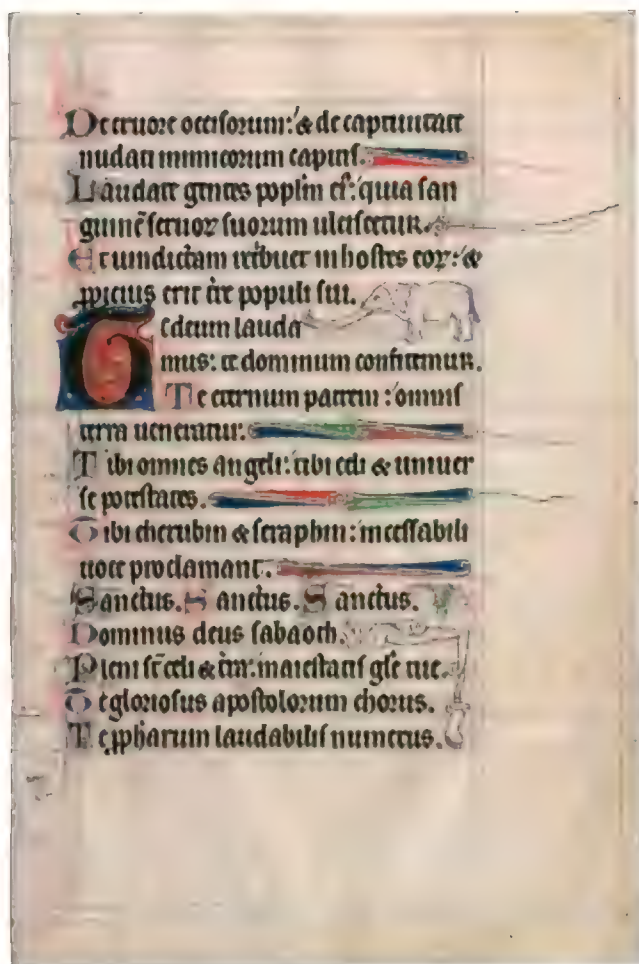 De cruore occisorum: & de captiuitate
nudati inimicorum capitis.
Laudate gentes popl̃m eĩ: quia san
guinẽ seruoꝝ suorum ulciscetur.
Et uindictam retribuet in hostes eoꝝ: &
ꝓpicius erit tr̃e populi sui.
Te deum lauda
mus: te dominum confitemur.
Te eternum patrem: omnis
terra ueneratur.
Tibi omnes angeli: tibi celi & uniuer
se potestates.
Tibi cherubin & seraphin: incessabili
uoce proclamant.
Sanctus. Sanctus. Sanctus.
Dominus deus sabaoth.
Pleni sũt celi & t̃ra: maiestatis gl̃e tue.
Te gloriosus apostolorum chorus.
Te ꝓpharum laudabilis numerus.